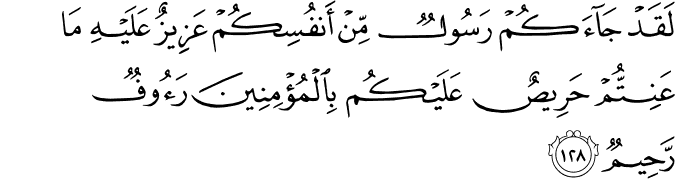 لَقَدْ جَآءَكُمْ رَسُولٌ مِّنْ أَنفُسِكُمْ عَزِيزٌ عَلَيْهِ مَا
عَنِتُّمْ حَرِيصٌ عَلَيْكُم بِٱلْمُؤْمِنِينَ رَءُوفٌ
رَّحِيمٌ ١٢٨